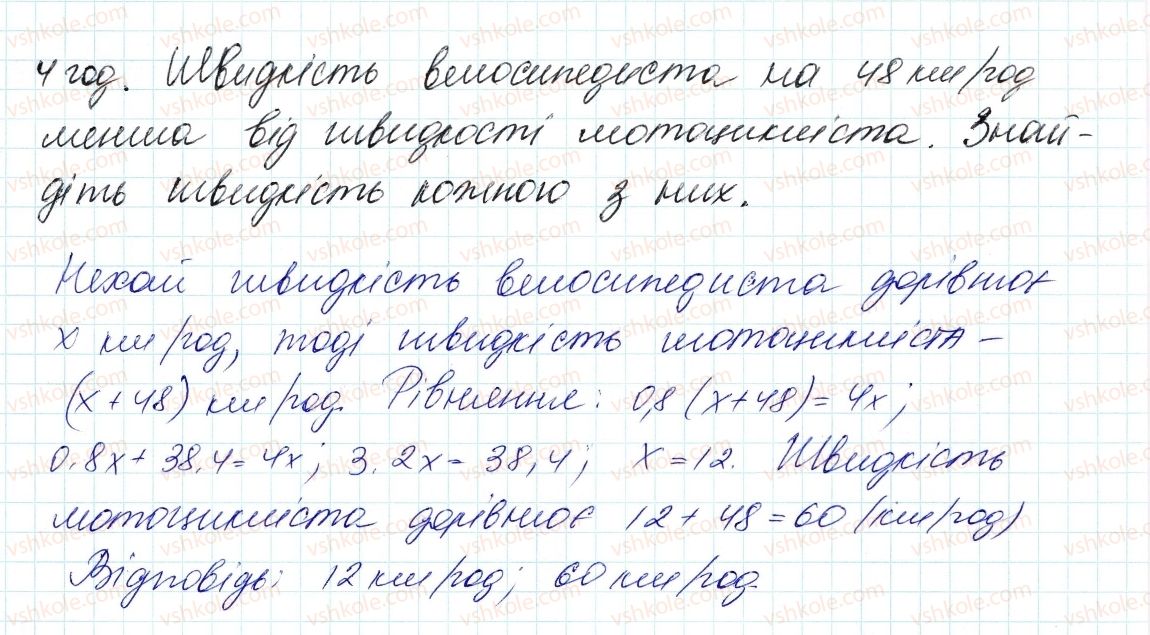 4 год. Швидкість велосипедиста на 48 км/год
менша від швидкості мотоцикліста. Знай-
діть швидкість кожного з них.
Нехай швидкість велосипедиста дорівнює
x км/год, тоді швидкість мотоцикліста –
(x + 48) км/год. Рівняння: 0,8 (x + 48) = 4x;
0,8x + 38,4 = 4x; 3,2x = 38,4; x = 12. Швидкість
мотоцикліста дорівнює 12 + 48 = 60 (км/год)
Відповідь: 12 км/год; 60 км/год.